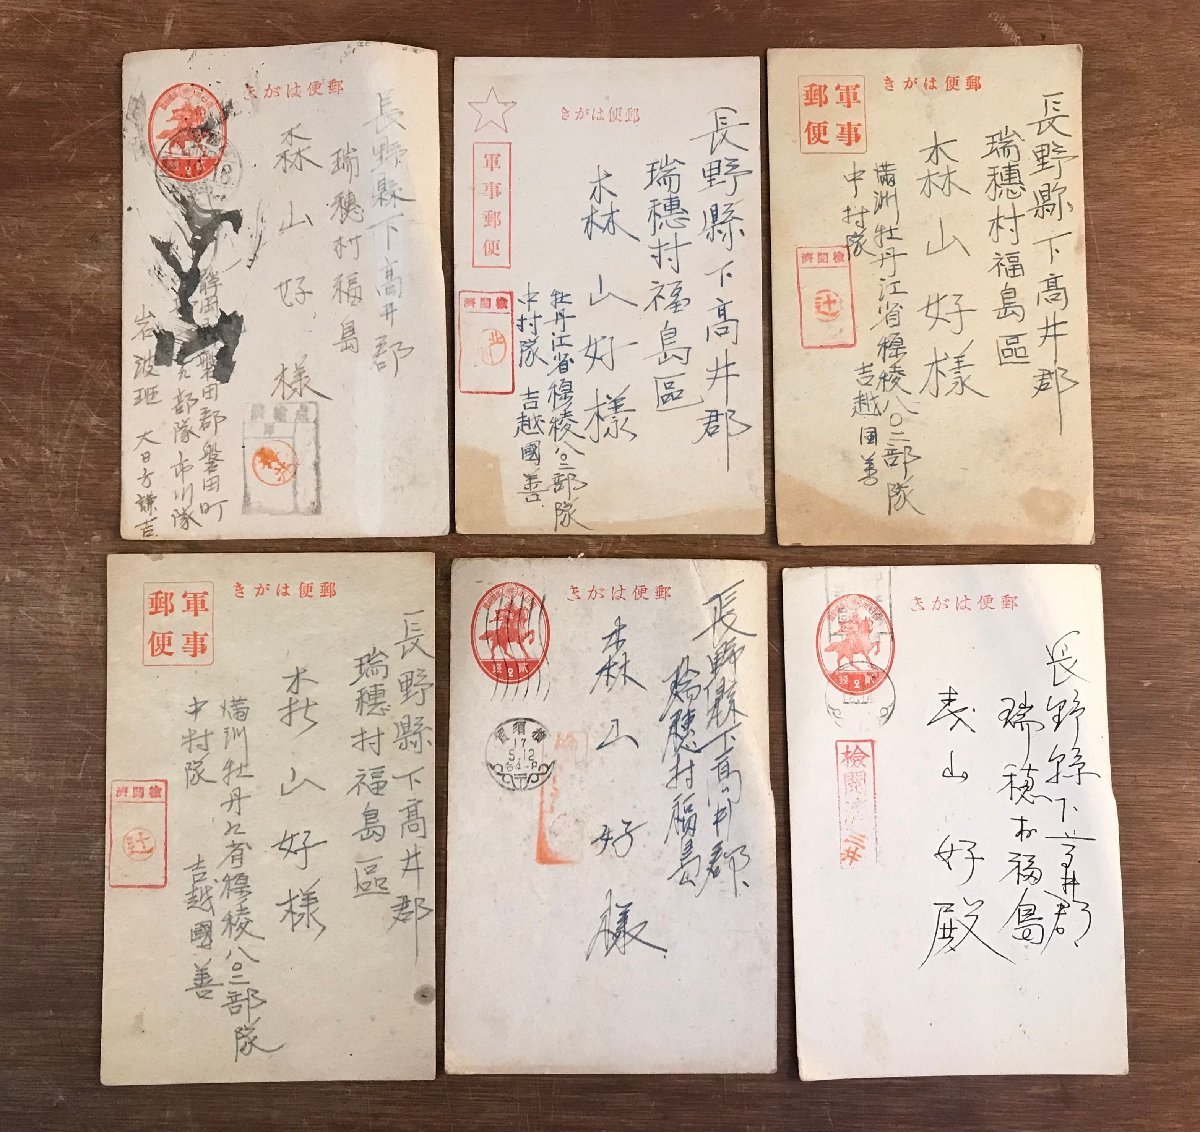 郵便はがき
長野縣下高井郡
瑞穂村福島
森山好様
磐田郡磐田町
部隊市川隊
岩波班 大日方謙吉
郵便はがき
軍事郵便
検閲済
長野縣下高井郡
瑞穂村福島區
森山好様
牡丹江省穆稜八〇二部隊
中村隊 吉越國善
郵便はがき
軍事郵便
検閲済
辻
長野縣下高井郡
瑞穂村福島區
森山好様
満洲牡丹江省穆稜八〇二部隊
中村隊 吉越国善
郵便はがき
軍事郵便
検閲済
辻
長野縣下高井郡
瑞穂村福島區
森山好様
満洲牡丹江省穆稜八〇二部隊
中村隊 吉越國善
郵便はがき
貳 2 錢
横須賀
17
5.12
長野縣下高井郡
瑞穂村福島
森山好様
郵便はがき
貳 2 錢
検閲済
長野縣下高井郡
瑞穂村福島
森山好殿